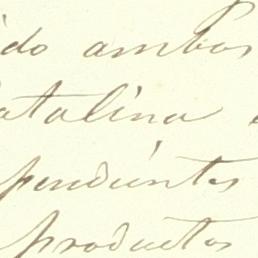 ido ambos
atalina
pendientes
productos